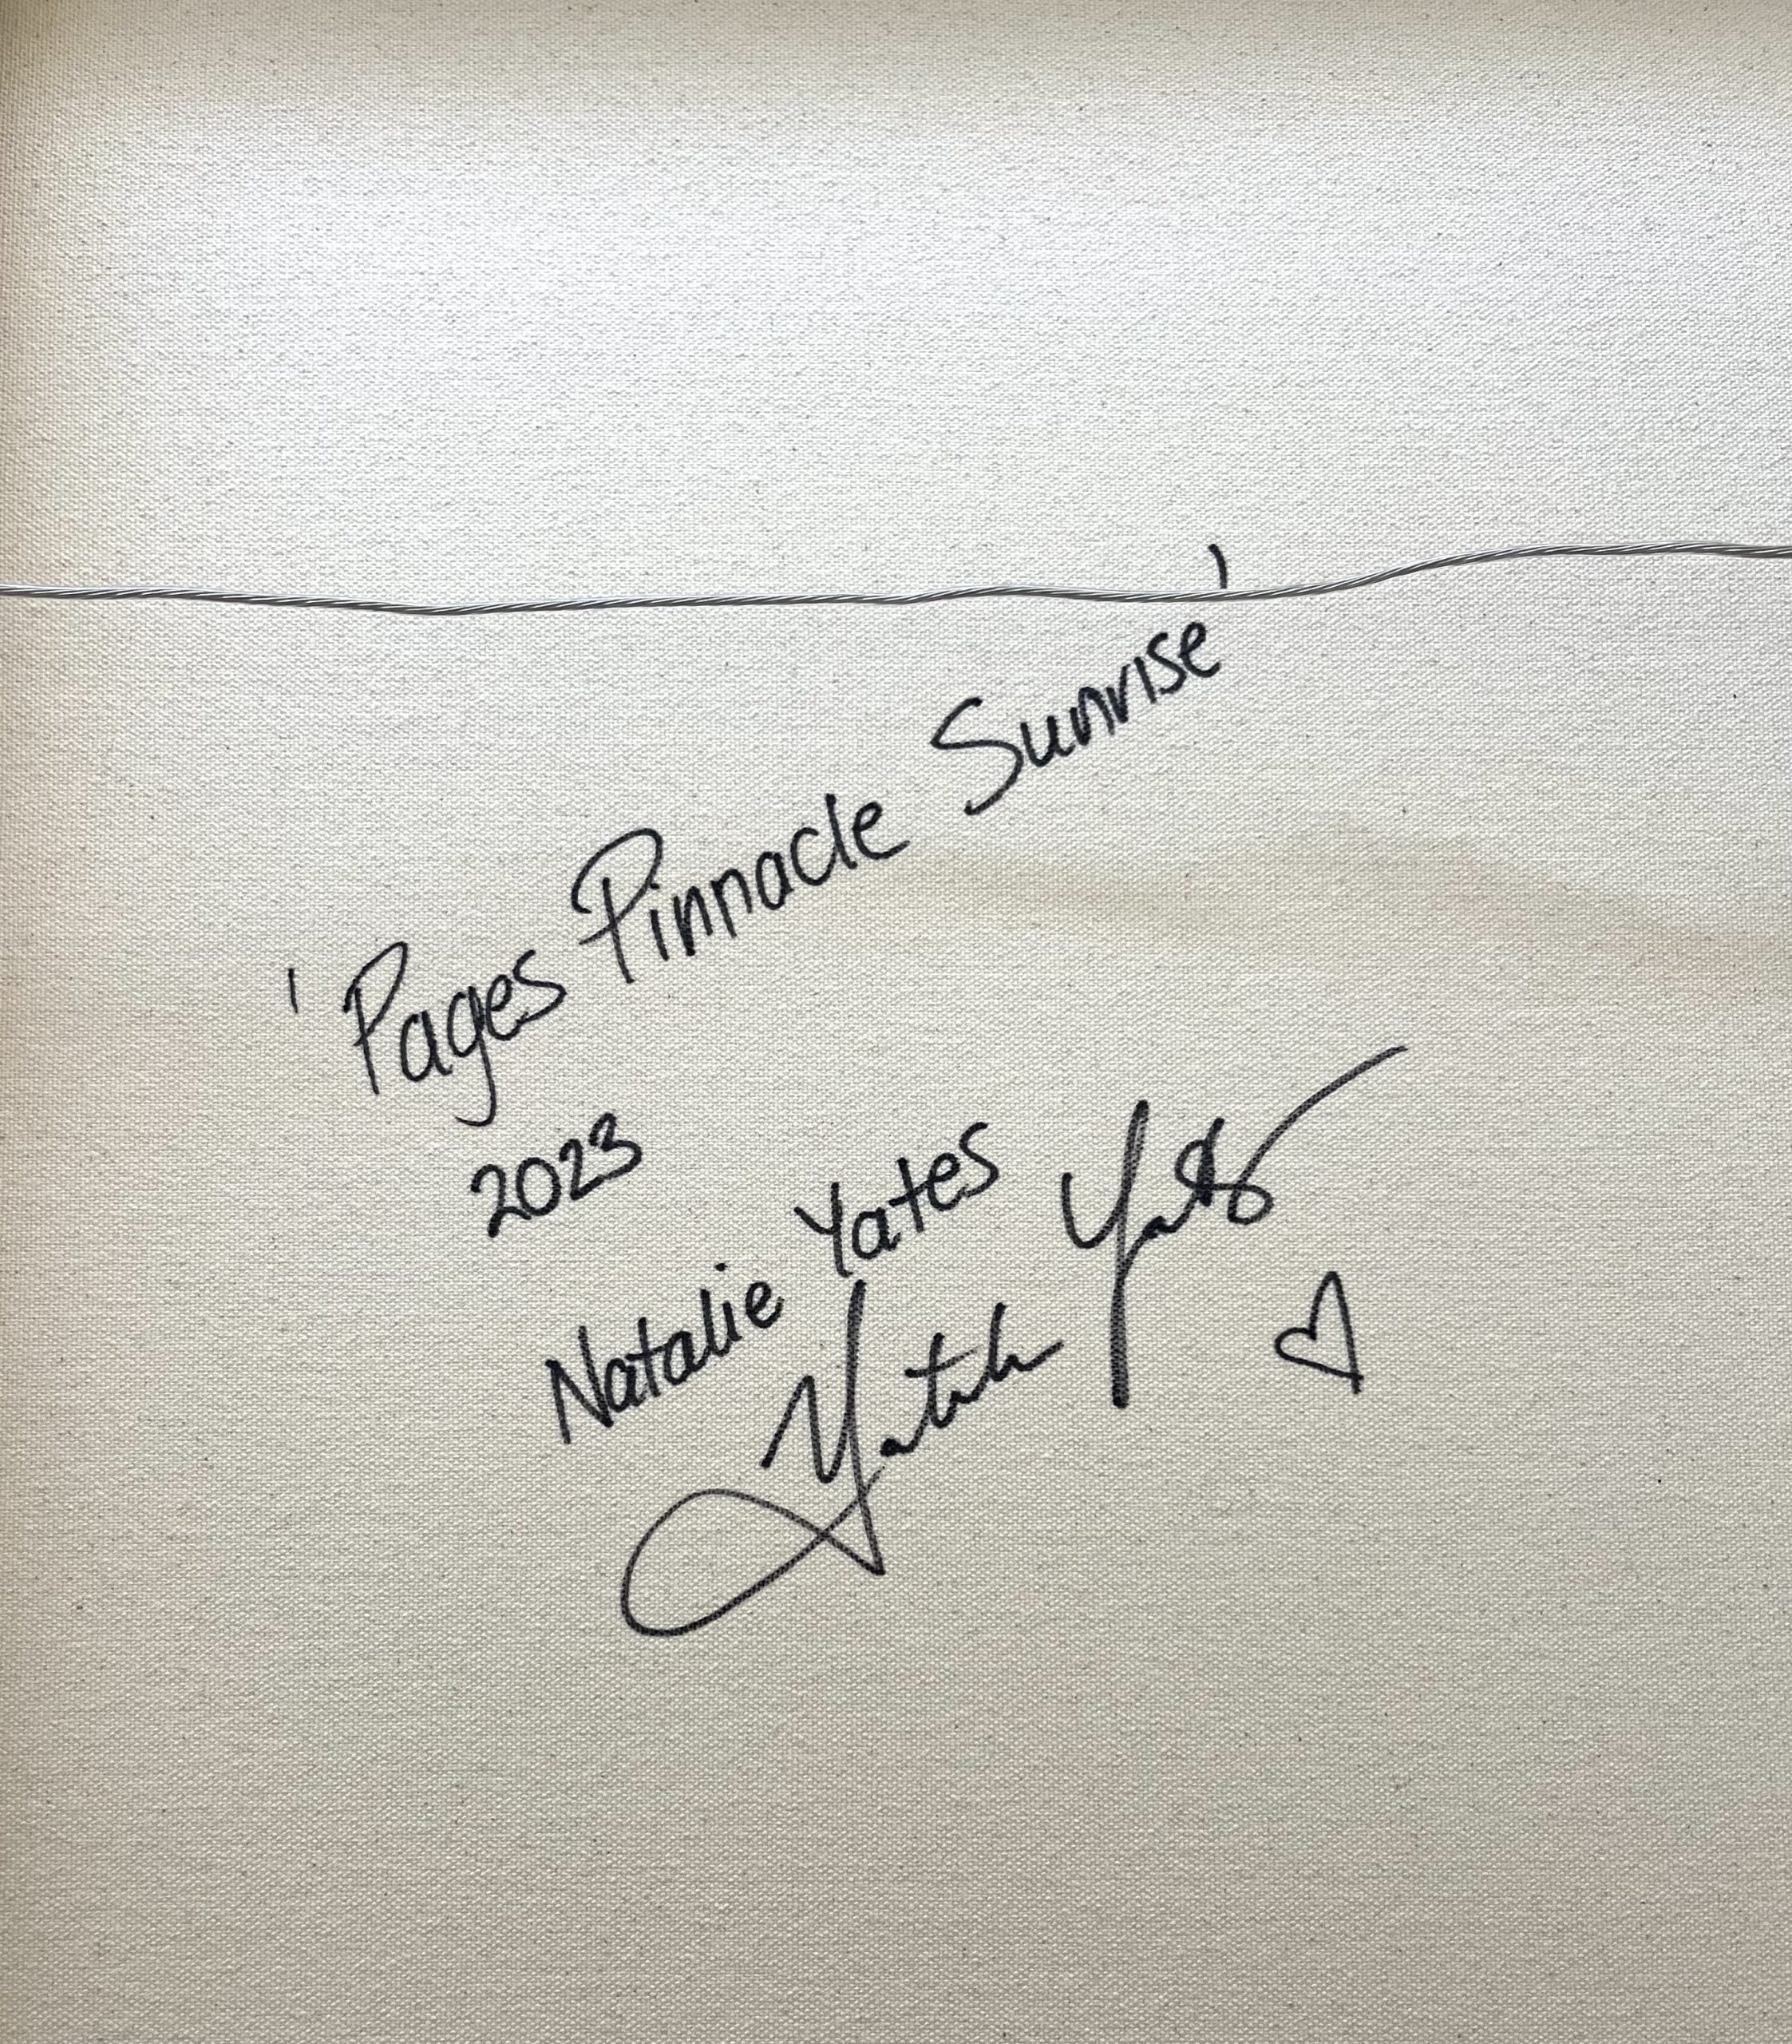 'Pages Pinnacle Sunrise'
2023
Natalie Yates
Natalie Yates